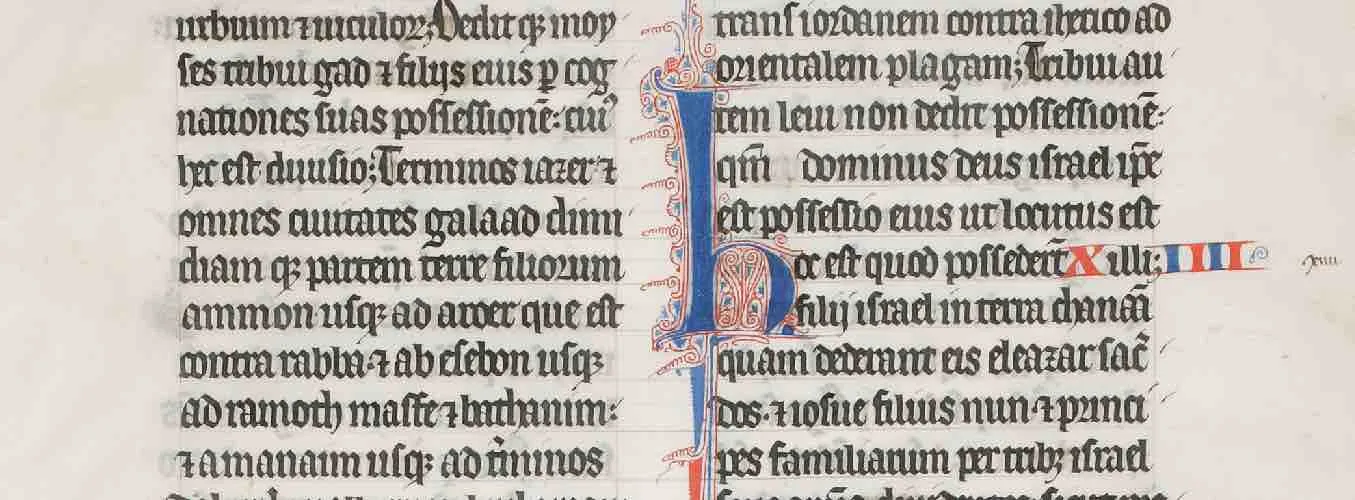 urbium ⁊ uiculoꝝ; Dedit qꝫ moy
ses tribui gad ⁊ filijs eius ꝑ cog
nationes suas possessionē: cuiꝰ
hec est diuisio; Terminos iazer ⁊
omnes ciuitates galaad dimi
diam qꝫ partem terre filiorum
ammon usqꝫ ad aroer que est
contra rabba· ⁊ ab esebon usqꝫ
ad ramoth masfe ⁊ bathanim:
⁊ a manaim usqꝫ ad t̉minos
trans iordanem contra iherico ad
orientalem plagam; Tribui au
tem leui non dedit possessionē:
qm̄ dominus deus israel ip̄e
est possessio eius ut locutus est
hec est quod possederūt XIIII illi;
filij israel in terra chanaā
quam dederant eis eleazar sac̄
dos· ⁊ iosue filius nun· ⁊ princi
pes familiarum per tribꝫ israel
xiiii